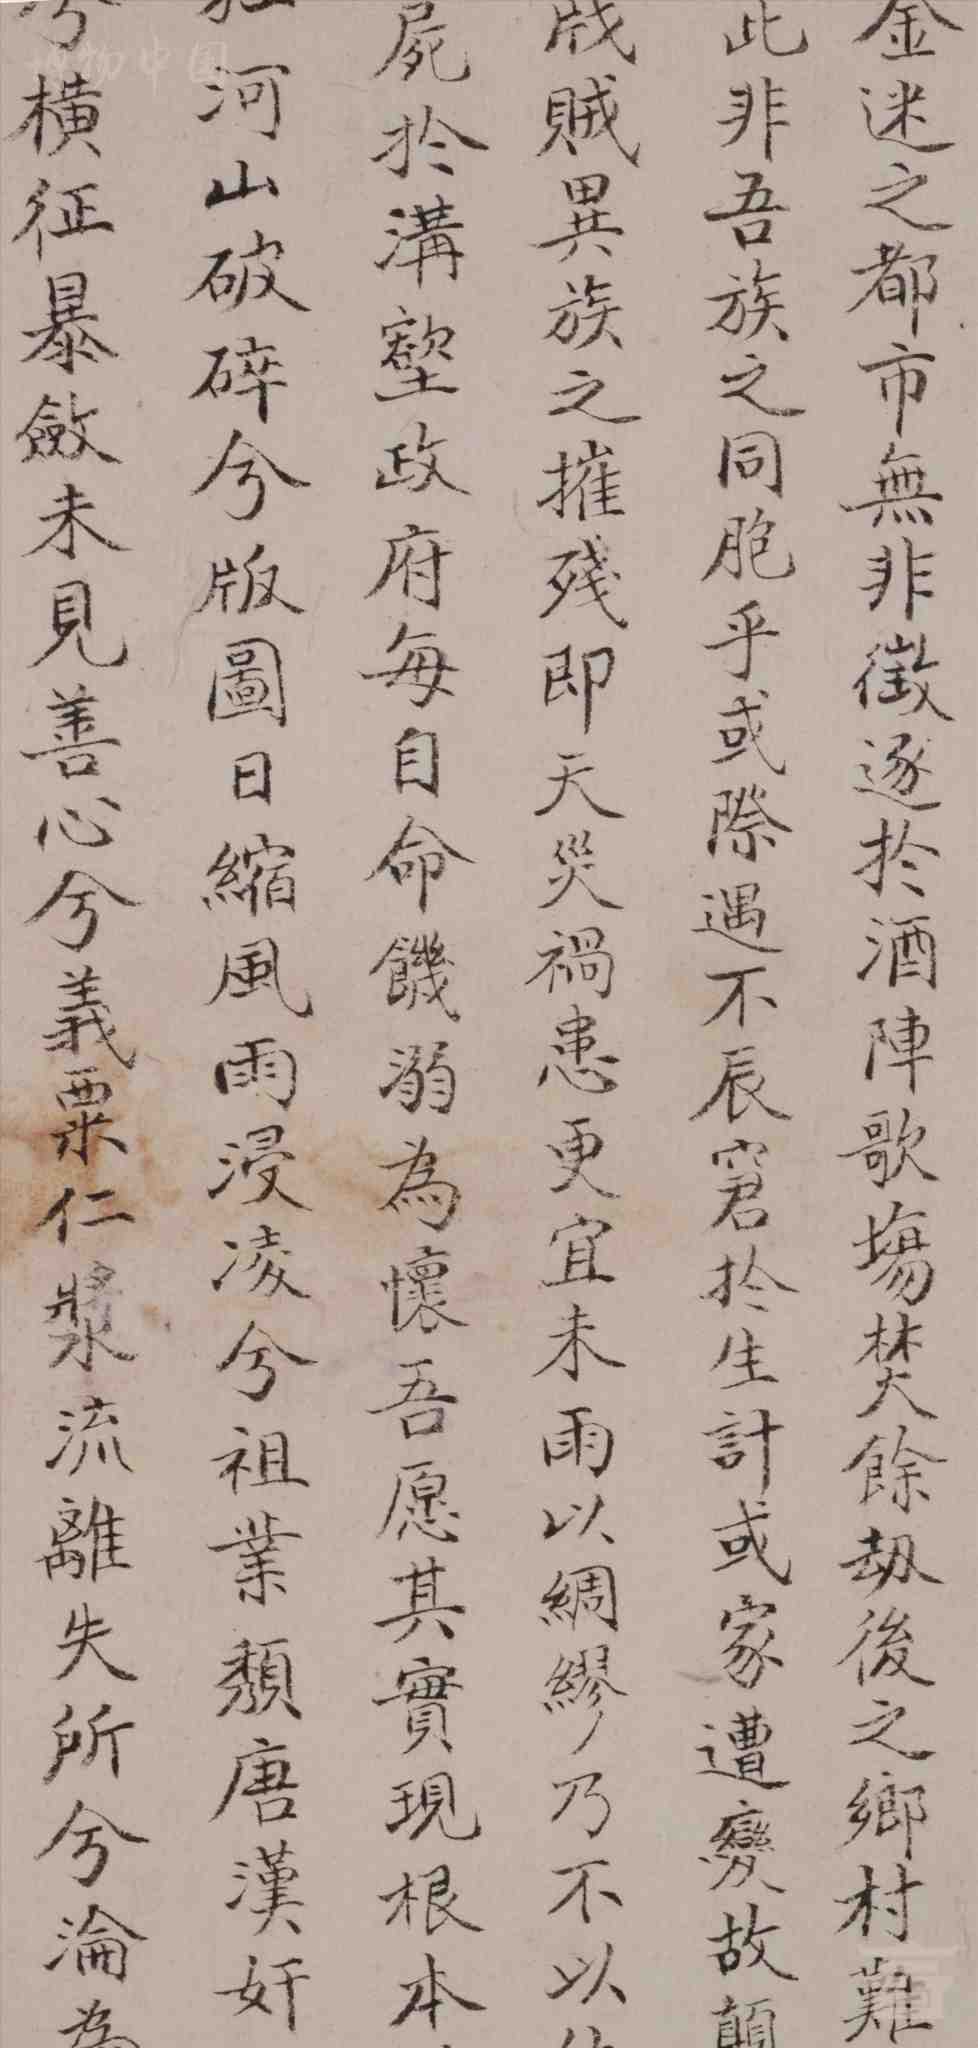 金迷之都市無非徵逐於酒陣歌場焚餘劫後之鄉村難
此非吾族之同胞乎或際遇不辰窘於生計或家遭變故顛
戕賊異族之摧殘即天災禍患更宜未雨以綢繆乃不以
屍於溝壑政府每自命饑溺為懷吾愿其實現根本
河山破碎兮版圖日縮風雨浸凌兮祖業頽唐漢奸
兮橫征暴斂未見善心兮義粟仁漿流離失所兮淪為
博物中国